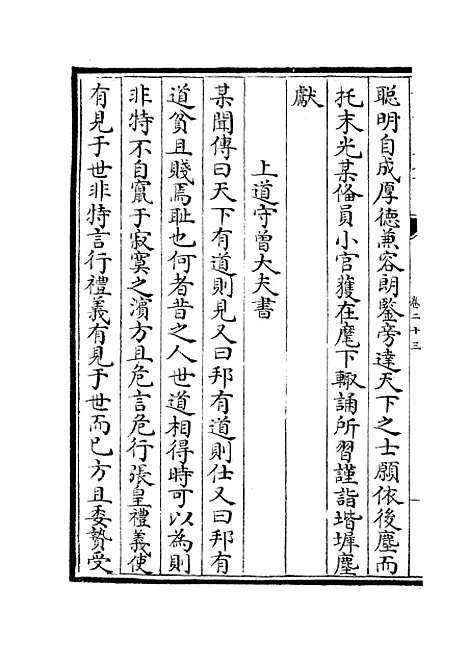 卷二十三
聰明自成厚德兼容朗鑒旁達天下之士願依後塵而
托末光某備員小官獲在麾下輒誦所習謹詣堦墀塵
獻
上道守曾大夫書
某聞傳曰天下有道則見又曰邦有道則仕又曰邦有
道貧且賤焉耻也何者昔之人世道相得時可以為則
非特不自竄于寂寞之濱方且危言危行張皇禮義使
有見于世非特言行禮義有見于世而已方且委贄受